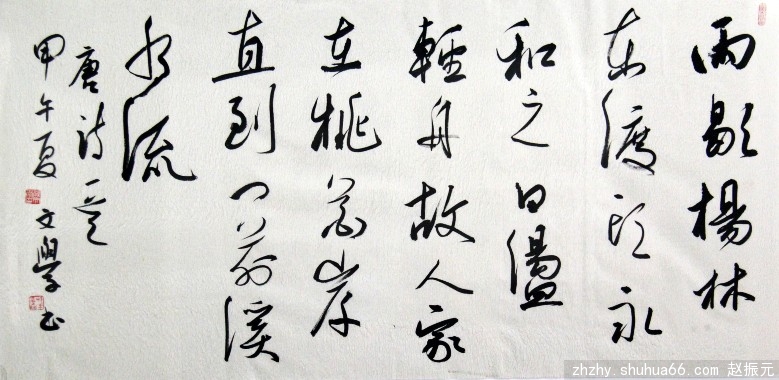 雨歇楊林
東渡頭永
和三日盪
輕舟故人家
在桃花岸
直到門前溪
水流
唐詩一首
甲午夏 文學書
zhzhy.shuhua66.com 赵振元